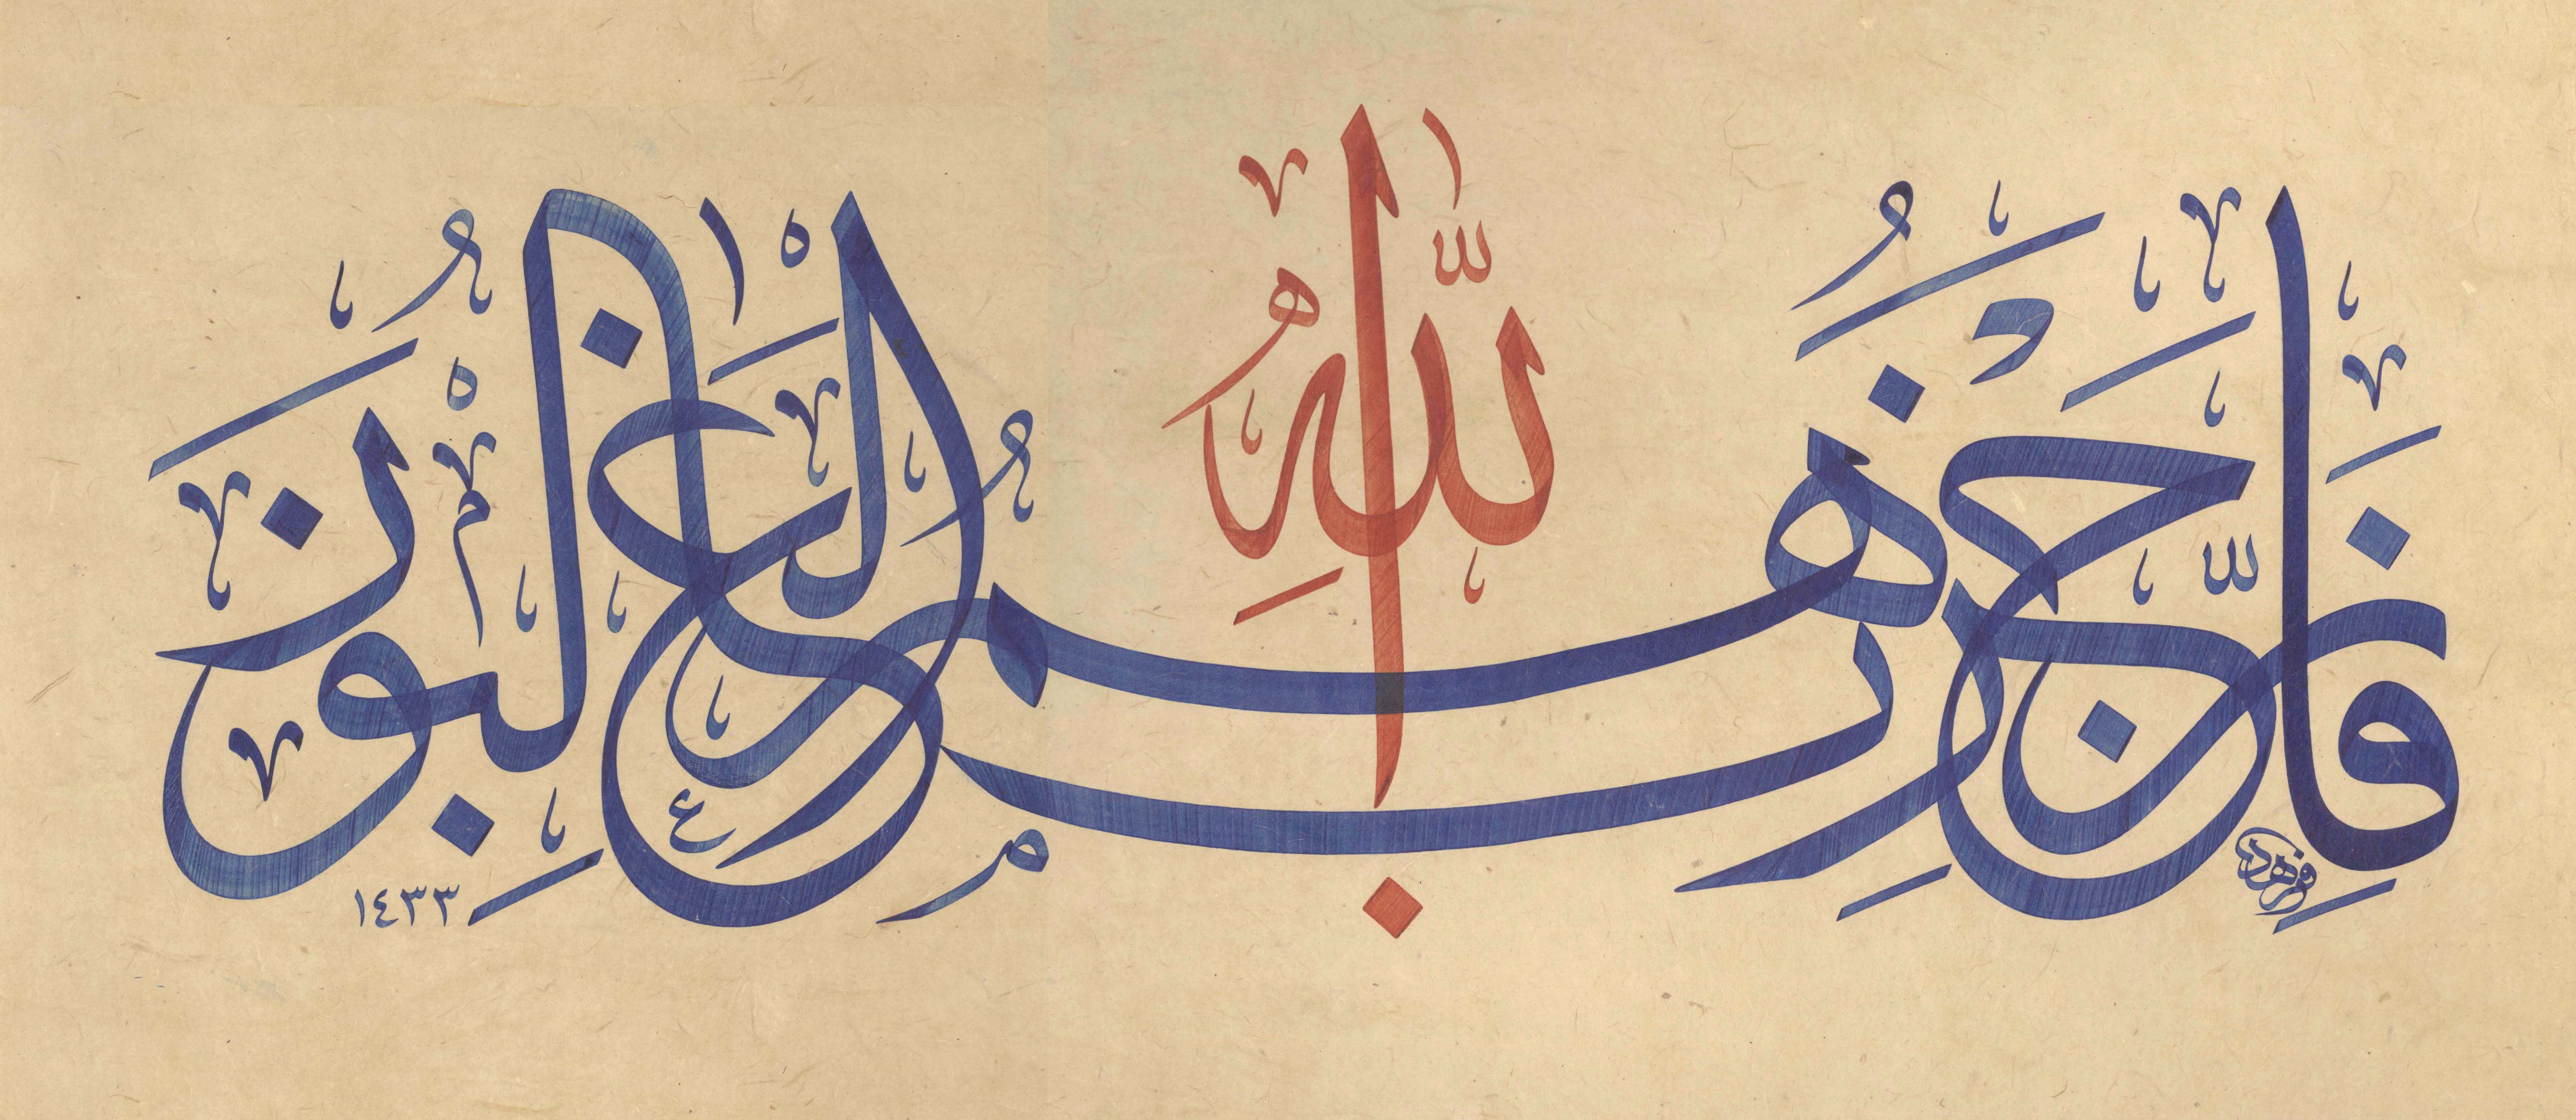 فَإِنَّ حِزْبَ اللّٰهِ هُمُ الْغَالِبُونَ
١٤٣٣